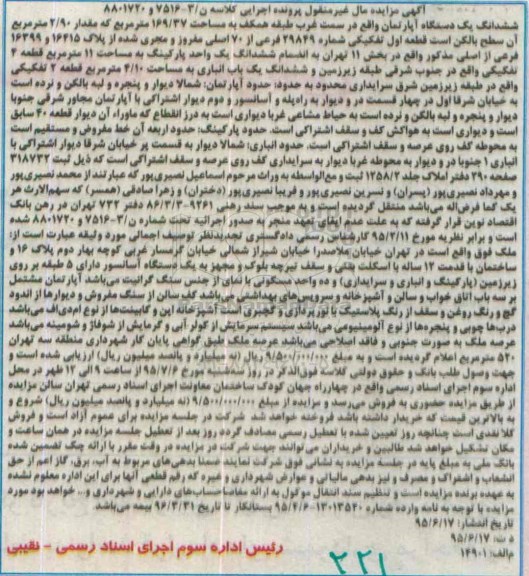 آگهی مزایده مال غیرمنقول پرونده اجرایی کلاسه ن/۷۵۱۶-۳ و ۸۸۰۱۷۲۰
ششدانگ یک دستگاه آپارتمان واقع در سمت غرب طبقه همکف به مساحت ۱۶۹/۳۷ مترمربع که مقدار ۲/۹۰ مترمربع
آن سطح بالکن است قطعه اول تفکیکی شماره ۲۹۸۴۹ فرعی از ۷۰ اصلی مفروز و مجزی شده از پلاک ۱۶۴۱۵ و ۱۶۳۹۹
فرعی از اصلی مذکور واقع در بخش ۱۱ تهران به انضمام ششدانگ یک واحد پارکینگ به مساحت ۱۱ مترمربع قطعه ۴
تفکیکی واقع در جنوب شرقی طبقه زیرزمین و ششدانگ یک باب انباری به مساحت ۴/۱۰ مترمربع قطعه ۲ تفکیکی
واقع در طبقه زیرزمین شرق سرایداری محدود به حدود: حدود آپارتمان: شمالا دیوار و پنجره و لبه بالکن و نرده است
به خیابان شرقا اول در چهار قسمت در و دیوار به راه‌پله و آسانسور و دوم دیوار اشتراکی با آپارتمان مجاور شرقی جنوبا
دیوار و پنجره و لبه بالکن و نرده است به حیاط مشاعی غربا دیواری است به درز انقطاع که ماوراء آن دیوار قطعه ۴۰ سابق
است و دیواری است به هواکش کف و سقف اشتراکی است. حدود پارکینگ: حدود اربعه آن خط مفروض و مستقیم است
به محوطه کف روی عرصه و سقف اشتراکی است. حدود انباری: شمالا دیوار به قسمت پر خیابان شرقا دیوار اشتراکی با
انباری ۱ جنوبا در و دیوار به محوطه غربا دیوار به سرایداری کف روی عرصه و سقف اشتراکی است که ذیل ثبت ۳۱۸۷۳۲
صفحه ۲۹۰ دفتر املاک جلد ۱۲۵۸/۲ ثبت و مع‌الواسطه به وراث مرحوم اسماعیل نصیری‌پور که عبارتند از محمد نصیری‌پور
و مهرداد نصیری‌پور (پسران) و نسرین نصیری‌پور و فریبا نصیری‌پور (دختران) و زهرا صادقی (همسر) که سهم‌الارث هر
یک کما فرض‌اله می‌باشد منتقل گردیده است و به موجب سند رهنی ۹۲۶۱-۸۲/۳/۳ دفتر ۷۲۲ تهران در رهن بانک
اقتصاد نوین قرار گرفته که به علت عدم ایفای تعهد منجر به صدور اجرائیه تحت شماره ن/۷۵۱۶-۳ و ۸۸۰۱۷۲۰ شده
است و برابر نظریه مورخ ۹۵/۲/۱۱ کارشناس رسمی دادگستری تجدیدنظر توصیف اجمالی مورد وثیقه عبارت است از:
ملک فوق واقع است در تهران خیابان ملاصدرا خیابان شیراز شمالی خیابان گرمسار غربی کوچه بهار دوم پلاک ۱۶ و
ساختمان با قدمت ۱۲ ساله با اسکلت بتنی و سقف تیرچه بلوک و مجهز به یک دستگاه آسانسور دارای ۵ طبقه بر روی
زیرزمین (پارکینگ و انباری و سرایداری) و ده واحد مسکونی با نمای از جنس سنگ گرانیت می‌باشد آپارتمان مشتمل
بر سه باب اتاق خواب و سالن و آشپزخانه و سرویس‌های بهداشتی می‌باشد کف سالن از سنگ مفروش و دیوارها از اندود
گچ و رنگ روغن و سقف از رنگ پلاستیک با نورپردازی و گچبری است آشپزخانه اپن و کابینت‌ها از نوع ام‌دی‌اف می‌باشد
درب‌ها چوبی و پنجره‌ها از نوع آلومینیومی می‌باشد سیستم سرمایش از کولر آبی و گرمایش از شوفاژ و شومینه می‌باشد
عرصه ملک به صورت جنوبی و فاقد اصلاحی می‌باشد عرصه ملک طبق گواهی پایان کار شهرداری منطقه سه تهران
۵۲۰ مترمربع اعلام گردیده است و به مبلغ ۹/۵۰۰/۰۰۰/۰۰۰ ریال (نه میلیارد و پانصد میلیون ریال) ارزیابی شده است و
جهت وصول طلب بانک و حقوق دولتی کلاسه فوق‌الذکر در روز سه‌شنبه مورخ ۹۵/۷/۶ از ساعت ۹ الی ۱۲ ظهر در محل
اداره سوم اجرای اسناد رسمی واقع در چهارراه جهان کودک ساختمان معاونت اجرای اسناد رسمی تهران سالن مزایده
از طریق مزایده حضوری به فروش می‌رسد و مزایده از مبلغ ۹/۵۰۰/۰۰۰/۰۰۰ (نه میلیارد و پانصد میلیون ریال) شروع و
به بالاترین قیمت که خریدار داشته باشد فروخته خواهد شد. شرکت در جلسه مزایده برای عموم آزاد است و فروش
کلا نقدی است چنانچه روز تعیین شده با تعطیل رسمی مصادف گردد روز بعد از تعطیل جلسه مزایده در همان ساعت و
مکان تشکیل خواهد شد طالبین و خریداران می‌توانند جهت شرکت در مزایده در وقت مقرر با ارائه چک تضمین شده
بانک ملی به مبلغ پایه در جلسه مزایده به نشانی فوق شرکت نمایند ضمنا بدهی‌های مربوط به آب، برق، گاز اعم از حق
انشعاب و اشتراک و مصرف و نیز بدهی مالیاتی و عوارض شهرداری و غیره که رقم قطعی آنها برای این اداره معلوم نشده
به عهده برنده مزایده است و تنظیم سند انتقال موکول به ارائه مفاصاحساب‌های دارایی و شهرداری و... خواهد بود مورد
مزایده با توجه به نامه وارده شماره ۱۳۰۱۳۵۲۰-۹۵/۴/۶ بستانکار تا تاریخ ۹۶/۳/۳۱ بیمه می‌باشد.
تاریخ انتشار: ۹۵/۶/۱۷
د ث: ۹۵/۶/۱۷
م‌الف: ۱۴۹۰۱
رئیس اداره سوم اجرای اسناد رسمی - نقیبی
۲۲۱